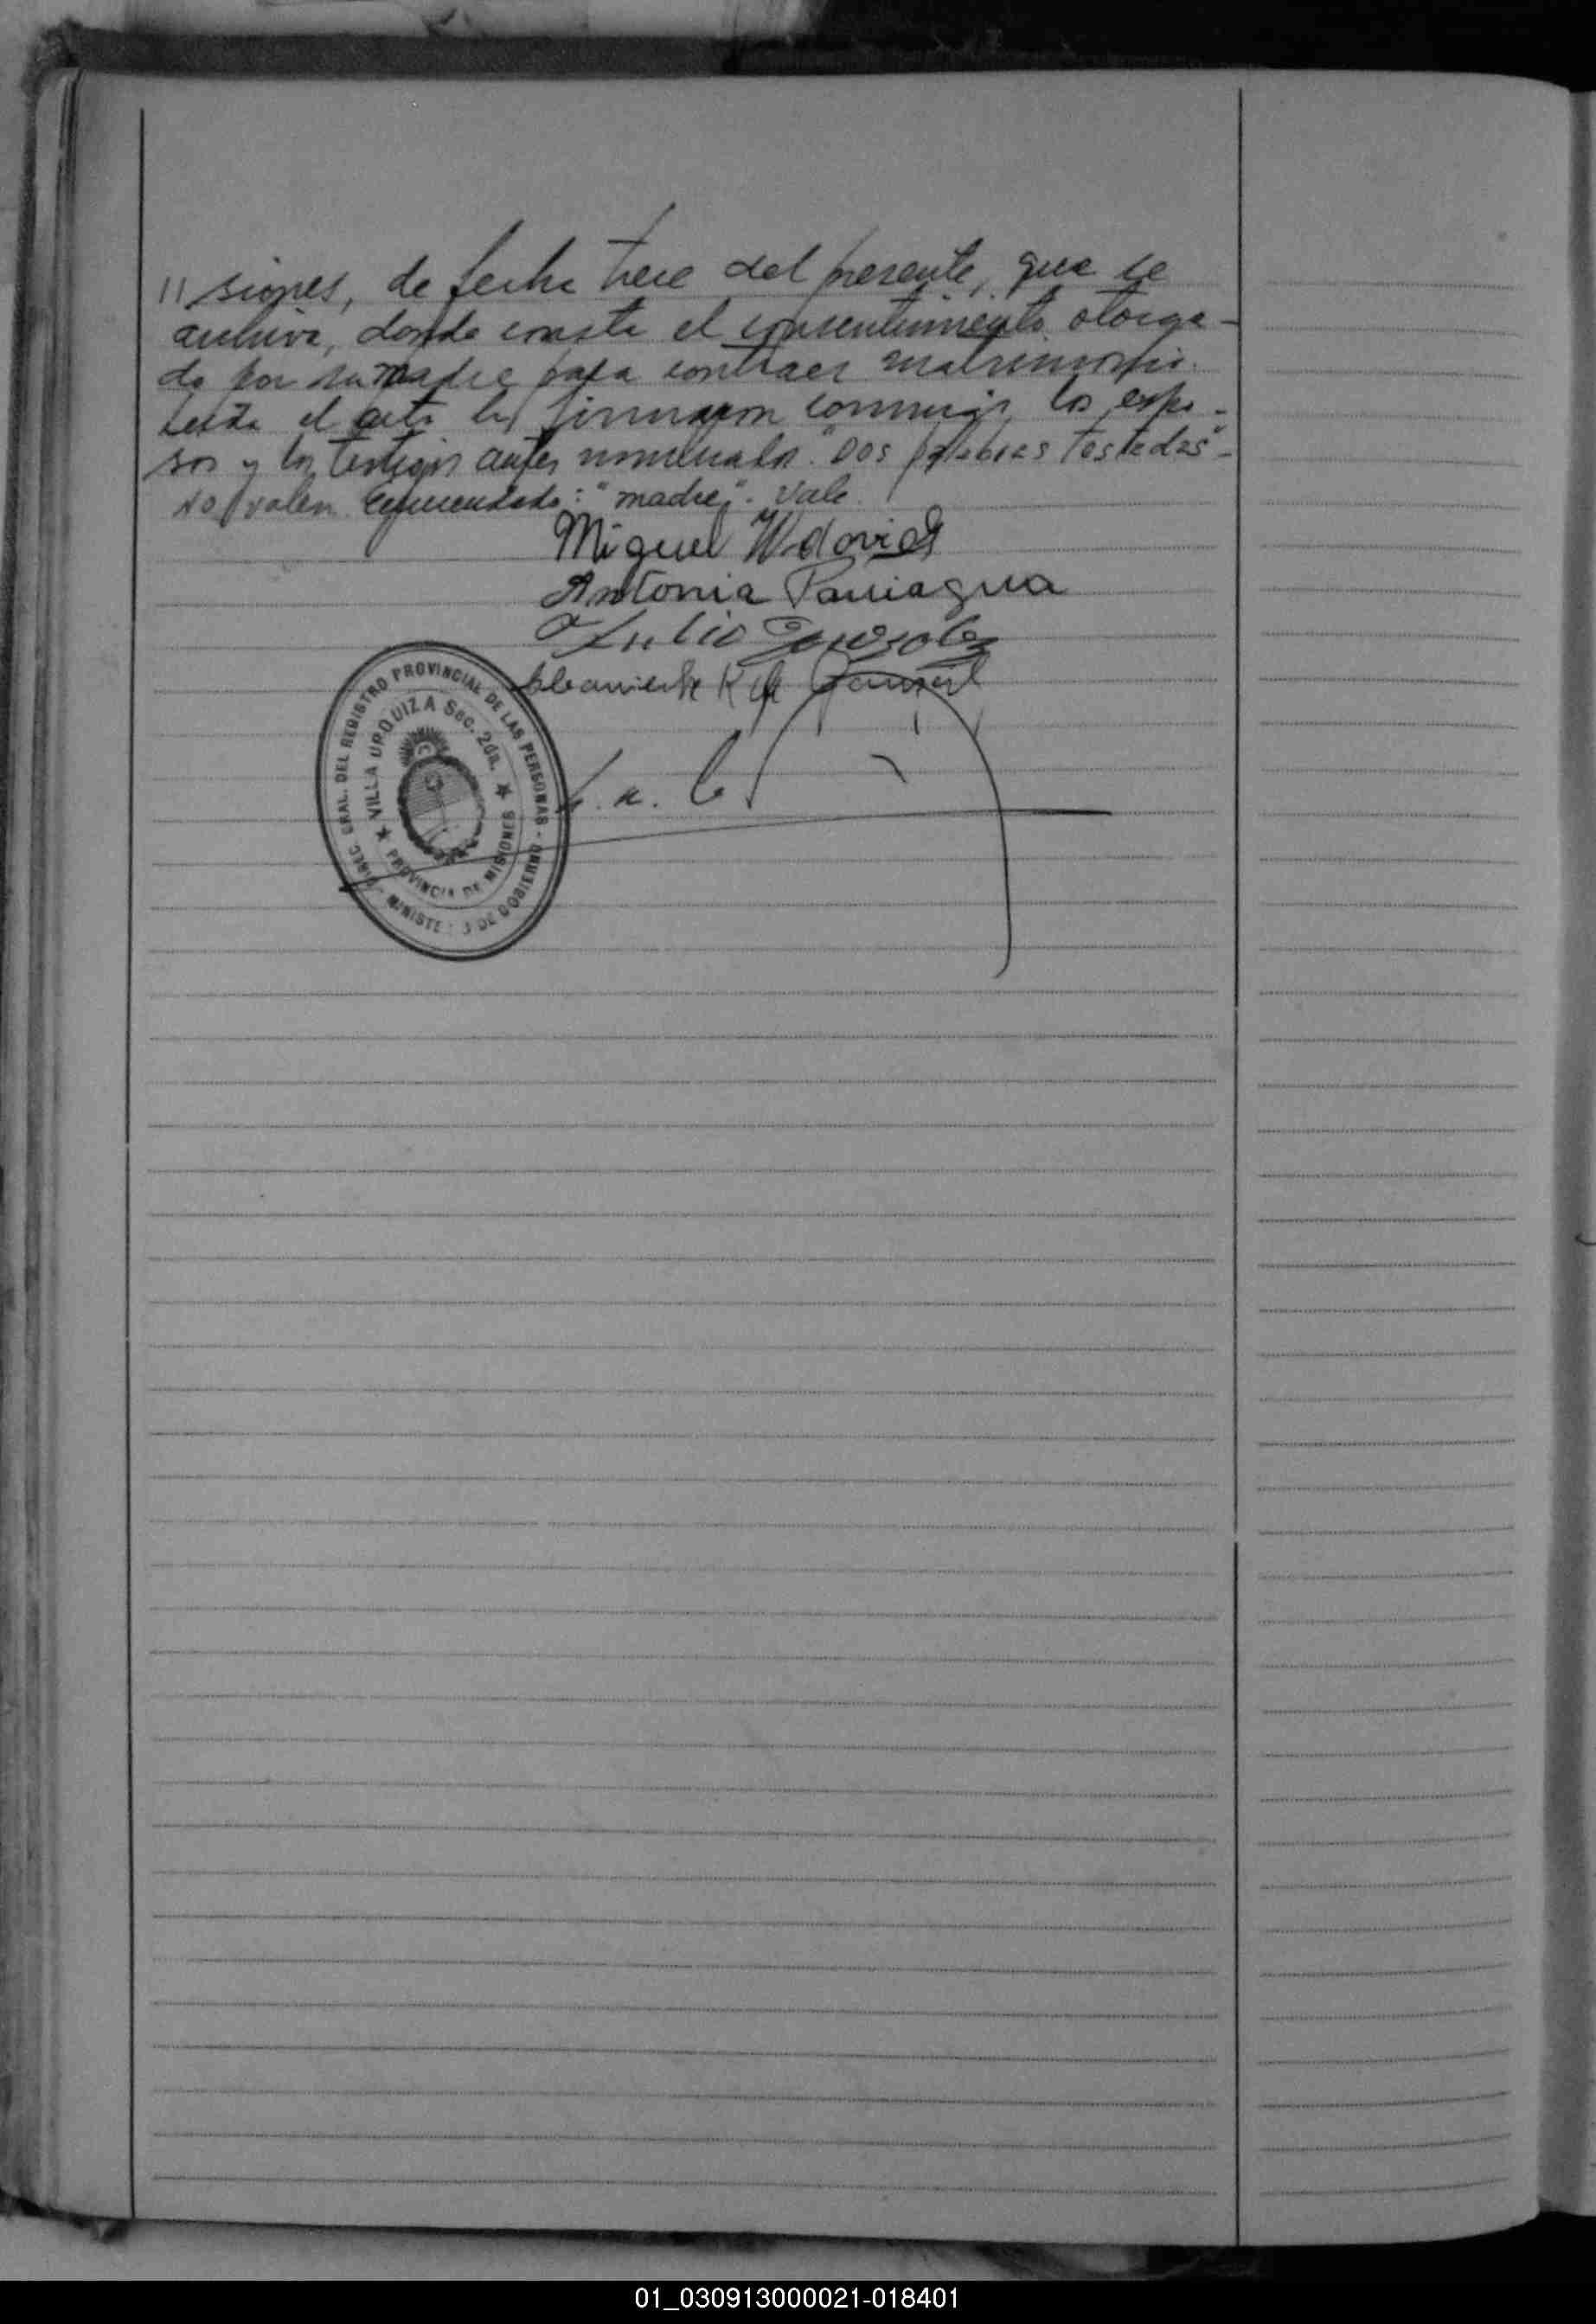 // siones, de fecha trece del presente, que se
archiva, donde consta el consentimiento otorga-
do por su madre para contraer matrimonio.
Leída el acta la firmaron conmigo, los espo-
sos y los testigos antes nombrados. "Dos palabras testadas"-
No valen. Enmendado: "madre". Vale.
Miguel Wdovich
Antonia Paniagua
Julio Gonzalez
DIREC. GRAL. DEL REGISTRO PROVINCIAL DE LAS PERSONAS - GOBIERNO
MINISTE DE
VILLA URQUIZA Sec. 2da.
PROVINCIA DE MISIONES
01_030913000021-018401